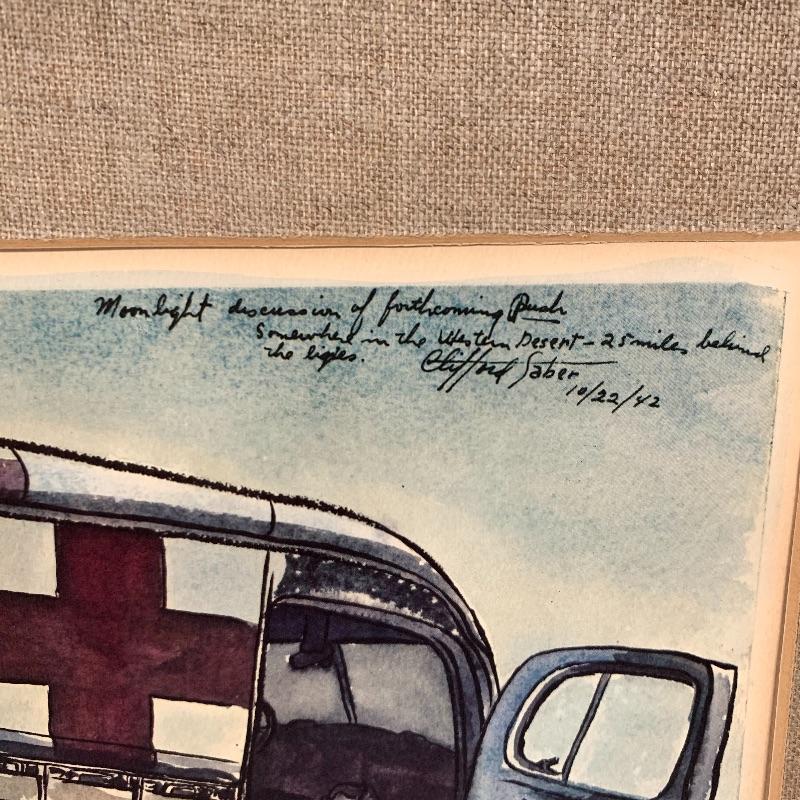 Moonlight discussion of forthcoming Push
Somewhere in the Western Desert - 25 miles behind
the lines.
Clifford Saber
10/22/42